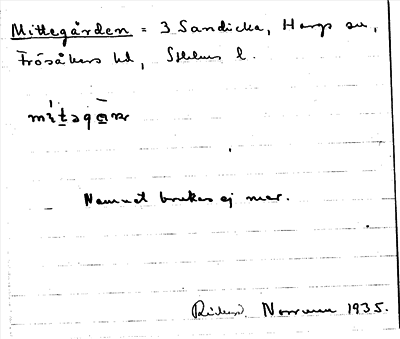 Mittegården = 3 Sandicka, Hargs sn,
Frösåkers hd, Sthlms l.
mɩ́t̲əgɑ̲̀ɳ
Namnet brukas ej mer.
Rickard Norrman 1935.